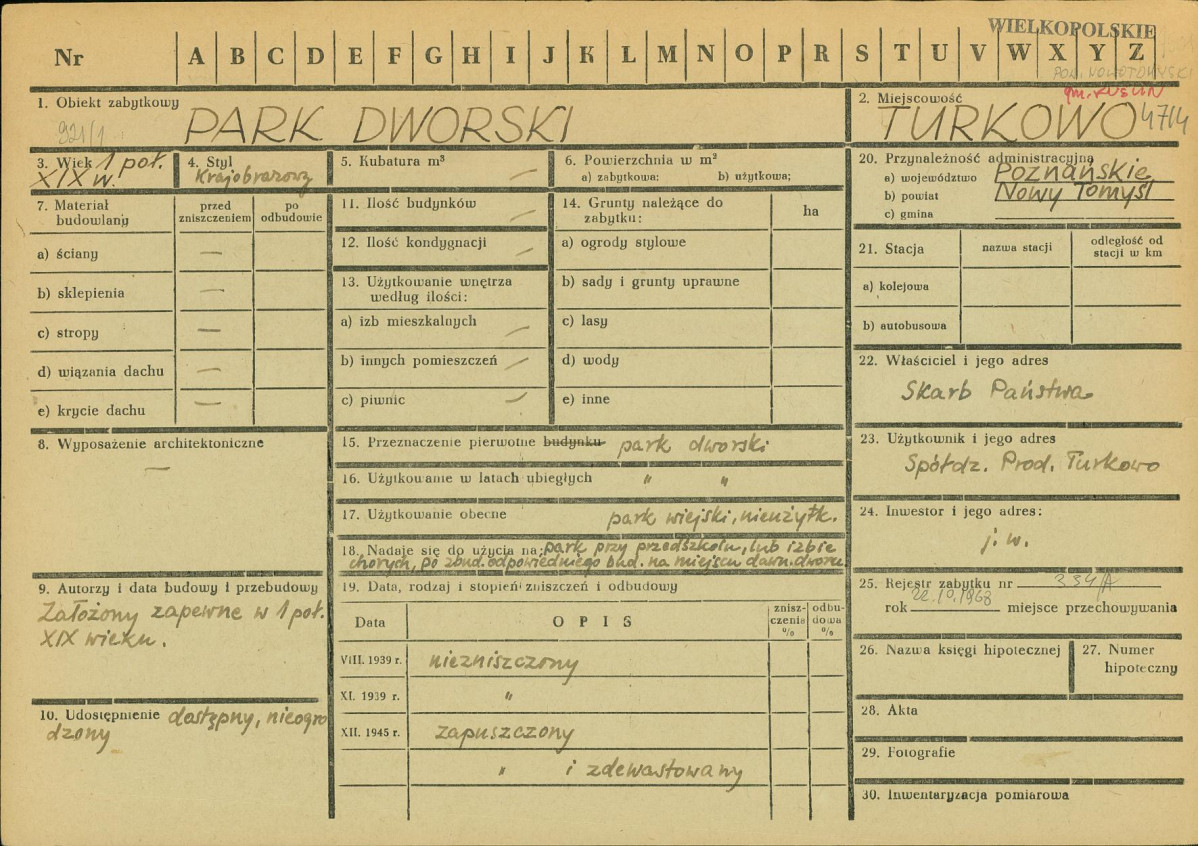 WIELKOPOLSKIE
Nr A B C D E F G H I J K L M N O P R S T U V W X Y Z
POW. NOWOTOMYSKI
gm. KUŚLIN
1. Obiekt zabytkowy
921/1
PARK DWORSKI
2. Miejscowość
TURKOWO 4714
3. Wiek 1 poł.
XIX w.
4. Styl
Krajobrazowy
5. Kubatura m³
—
6. Powierzchnia w m²
a) zabytkowa: b) użytkowa;
20. Przynależność administracyjna
a) województwo Poznańskie
b) powiat Nowy Tomyśl
c) gmina
7. Materiał budowlany
przed zniszczeniem
po odbudowie
a) ściany —
b) sklepienia —
c) stropy —
d) wiązania dachu —
e) krycie dachu —
11. Ilość budynków —
12. Ilość kondygnacji —
13. Użytkowanie wnętrza
według ilości:
a) izb mieszkalnych —
b) innych pomieszczeń —
c) piwnic —
14. Grunty należące do
zabytku:
ha
a) ogrody stylowe
b) sady i grunty uprawne
c) lasy
d) wody
e) inne
21. Stacja
nazwa stacji
odległość od
stacji w km
a) kolejowa
b) autobusowa
22. Właściciel i jego adres
Skarb Państwa
8. Wyposażenie architektoniczne
—
15. Przeznaczenie pierwotne budynku park dworski
16. Użytkowanie w latach ubiegłych " "
17. Użytkowanie obecne park wiejski, nieużytk.
18. Nadaje się do użycia na: park przy przedszkolu, lub izbie
chorych, po zbud. odpowiedniego bud. na miejscu dawn. dworu.
23. Użytkownik i jego adres
Spółdz. Prod. Turkowo
24. Inwestor i jego adres:
j. w.
9. Autorzy i data budowy i przebudowy
Założony zapewne w 1 poł.
XIX wieku.
19. Data, rodzaj i stopień zniszczeń i odbudowy
Data
OPIS
znisz-
czenia
%
odbu-
dowa
%
VIII. 1939 r. niezniszczony
XI. 1939 r. "
XII. 1945 r. zapuszczony
" i zdewastowany
25. Rejestr zabytku nr 334/A
rok 22.10.1968 miejsce przechowywania
26. Nazwa księgi hipotecznej
27. Numer
hipoteczny
10. Udostępnienie dostępny, nieogro
dzony
28. Akta
29. Fotografie
30. Inwentaryzacja pomiarowa